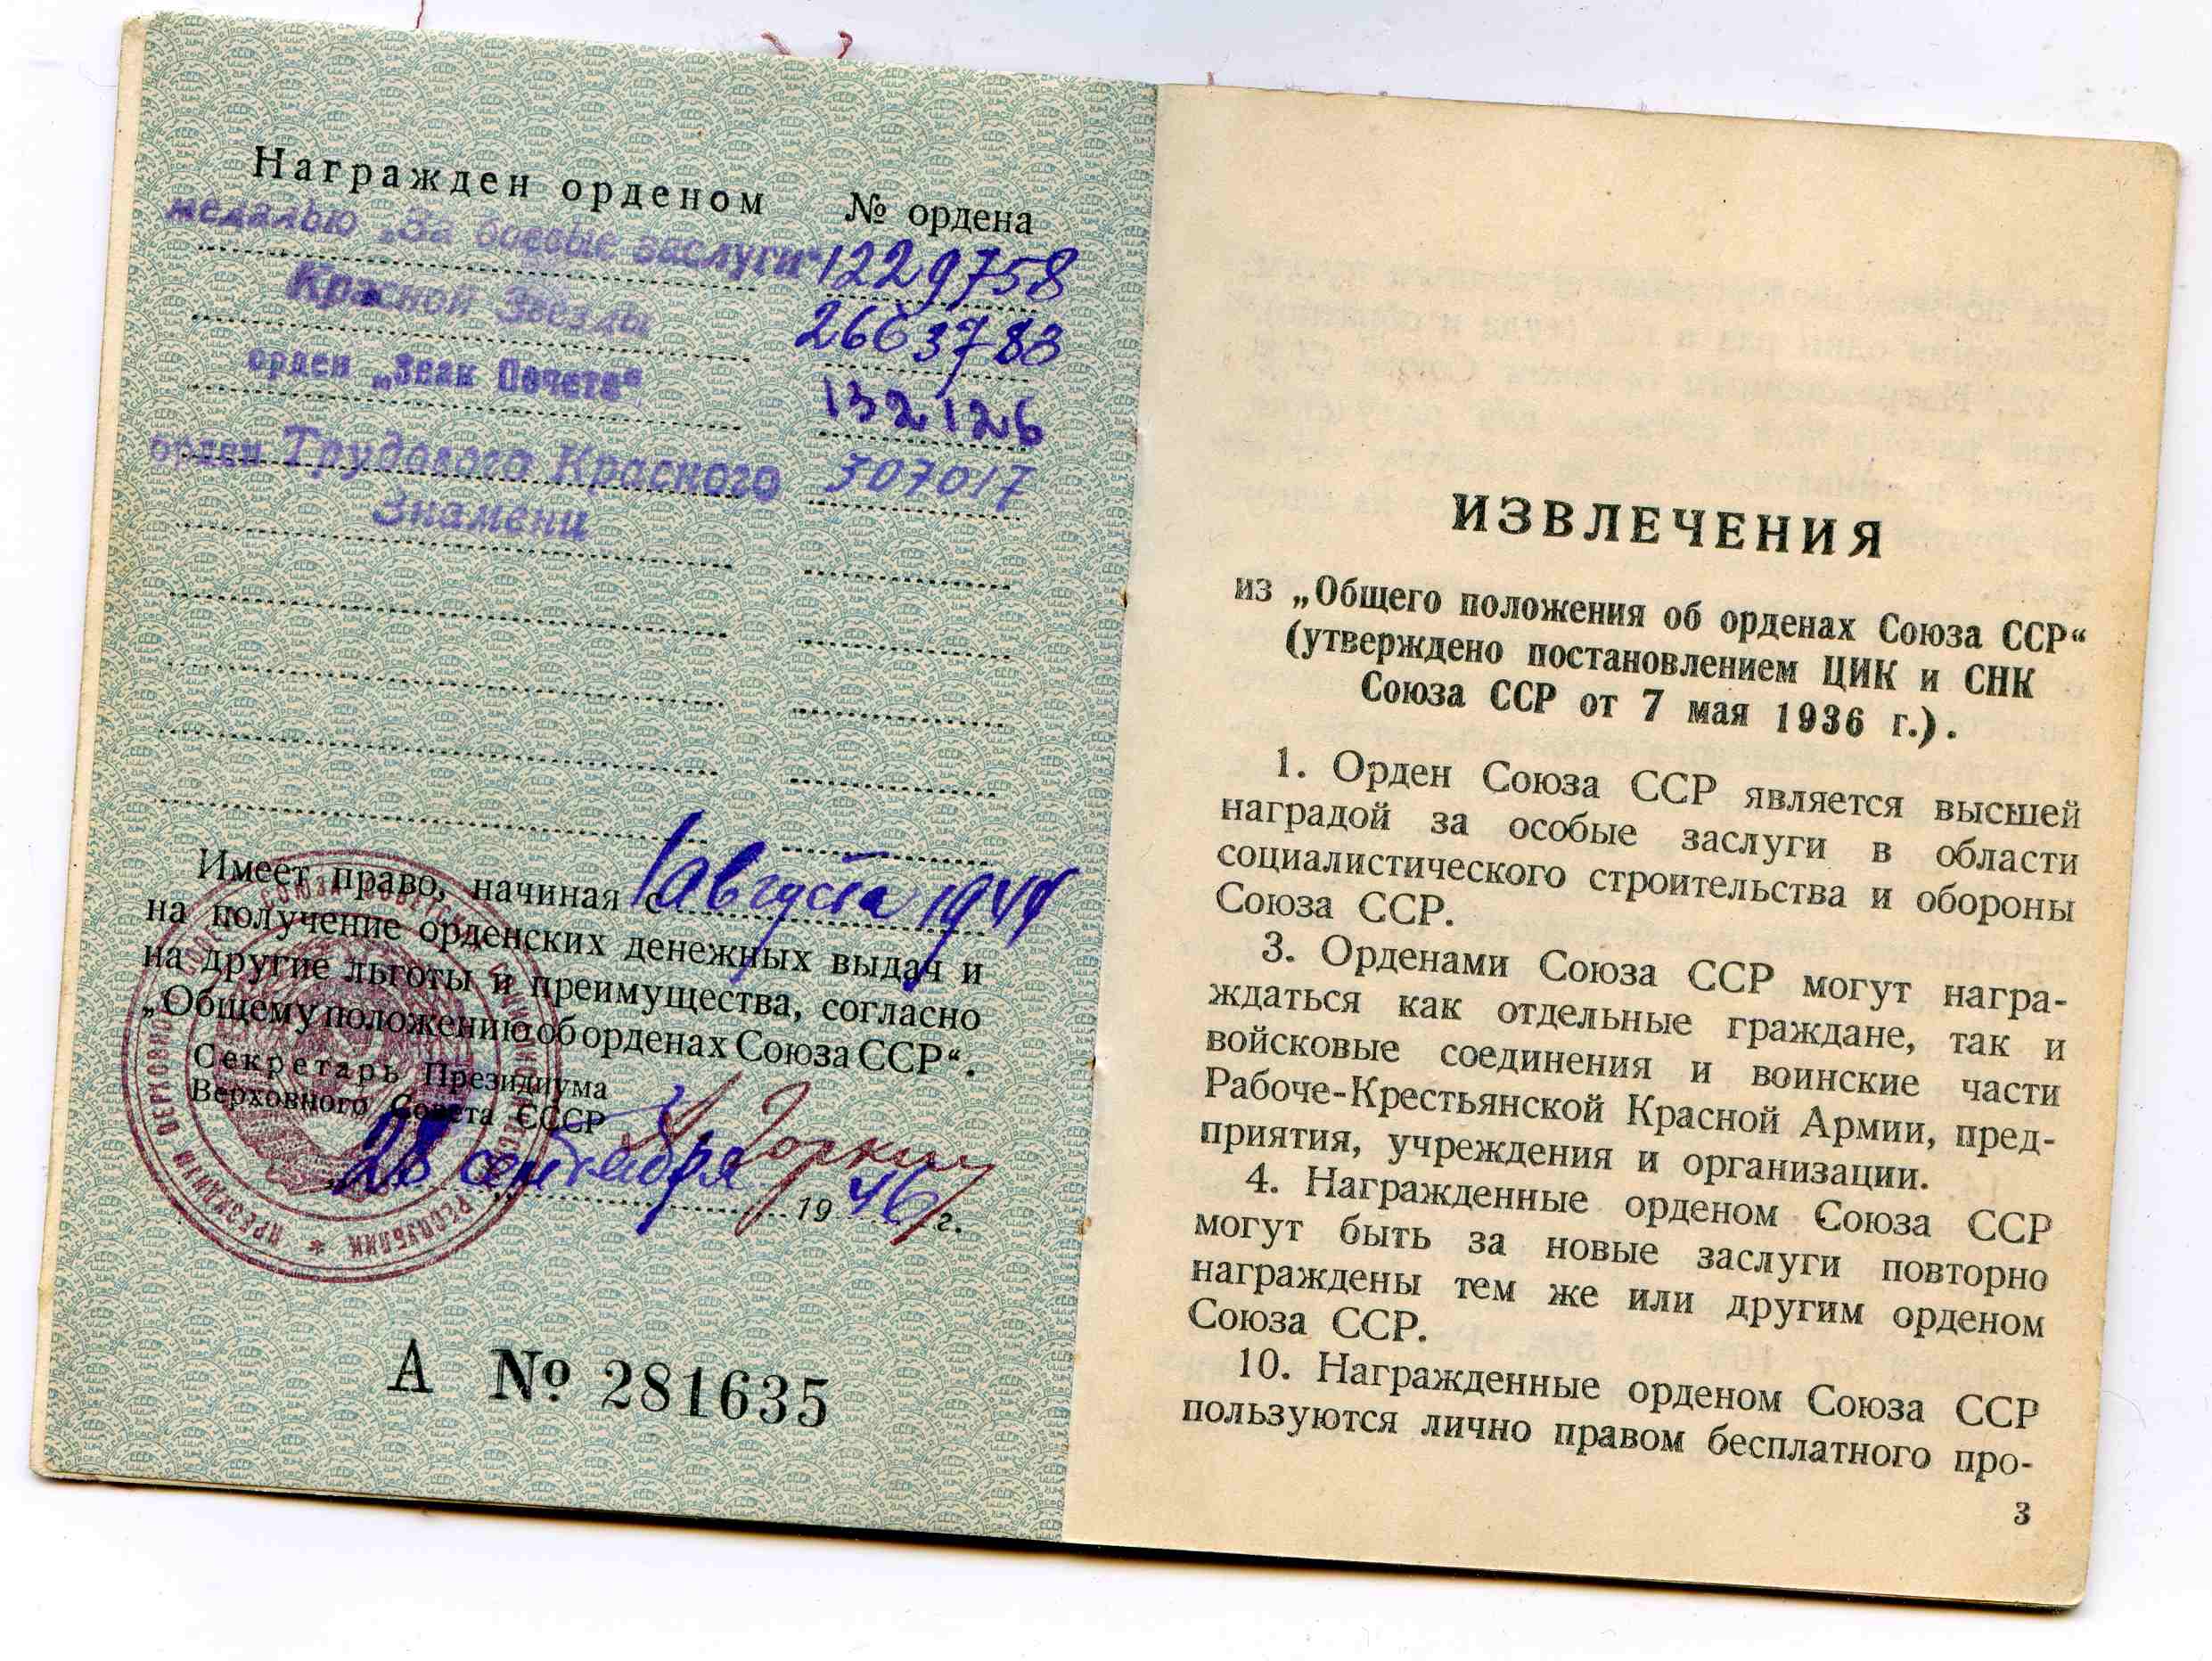 Награжден орденом № ордена
медалью „За боевые заслуги“ 1229758
Красной Звезды 2663783
орден „Знак Почета“ 132126
орден Трудового Красного 307017
Знамени
Имеет право, начиная с 1 августа 1944
на получение орденских денежных выдач и
на другие льготы и преимущества, согласно
„Общему положению об орденах Союза ССР“.
Секретарь Президиума
Верховного Совета СССР
А Горкин
28 сентября 1946 г.
А № 281635
ИЗВЛЕЧЕНИЯ
из „Общего положения об орденах Союза ССР“
(утверждено постановлением ЦИК и СНК
Союза ССР от 7 мая 1936 г.).
1. Орден Союза ССР является высшей
наградой за особые заслуги в области
социалистического строительства и обороны
Союза ССР.
3. Орденами Союза ССР могут награ-
ждаться как отдельные граждане, так и
войсковые соединения и воинские части
Рабоче-Крестьянской Красной Армии, пред-
приятия, учреждения и организации.
4. Награжденные орденом Союза ССР
могут быть за новые заслуги повторно
награждены тем же или другим орденом
Союза ССР.
10. Награжденные орденом Союза ССР
пользуются лично правом бесплатного про-
3